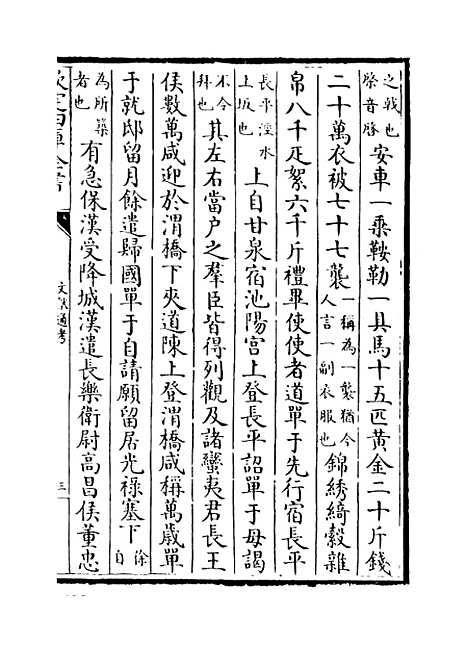 之戟也
棨音啓
安車一乗鞍勒一具馬十五匹黄金二十斤錢
二十萬衣被七十七襲
一稱為一襲猶今
人言一副衣服也
錦綉綺縠雜
帛八千疋絮六千斤禮畢使使者道單于先行宿長平
長平涇水
上坂也
上自甘泉宿池陽宫上登長平詔單于毋謁
不令
拜也
其左右當户之羣臣皆得列觀及諸蠻夷君長王
侯數萬咸迎於渭橋下夾道陳上登渭橋咸稱萬歲單
于就邸留月餘遣歸國單于自請願留居光祿塞下
徐
自
為所築
者也
有急保漢受降城漢遣長樂衛尉高昌侯董忠
欽定四庫全書
文獻通考
三